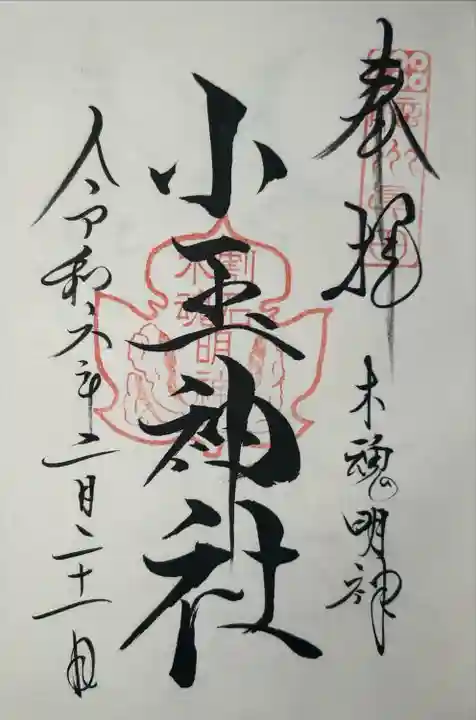 奉拝
木魂の明神
小玉神社
令和六年二月二十一日
木魂明神